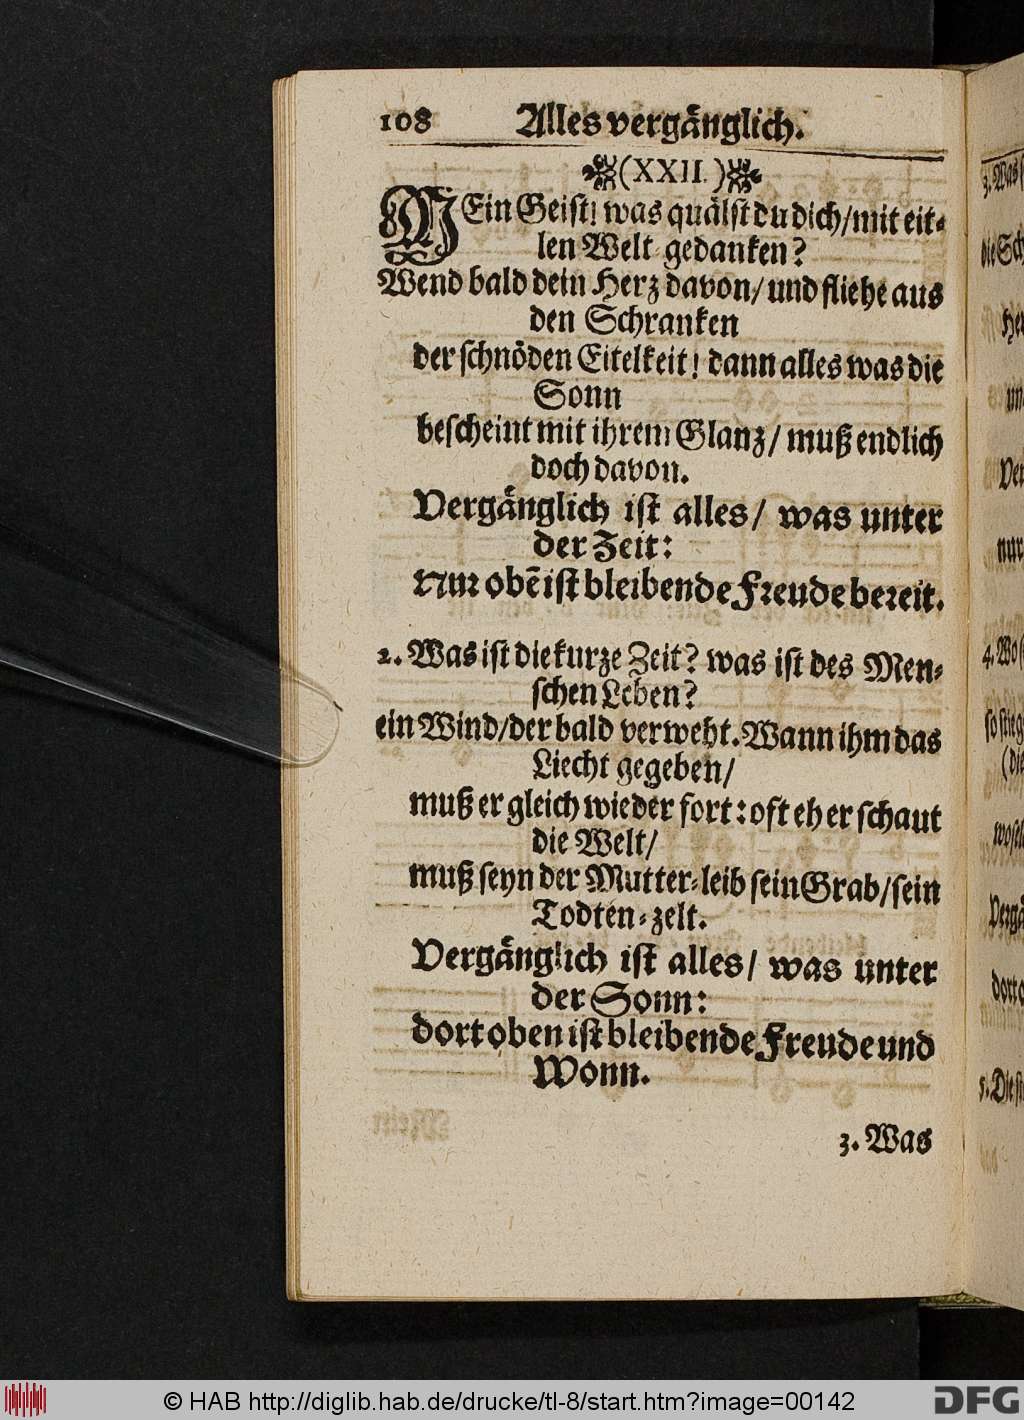 108 Alles vergänglich.
(XXII.)
MEin Geist! was quälst du dich/mit eit-
len Welt-gedanken?
Wend bald dein Herz davon/ und fliehe aus
den Schranken
der schnöden Eitelkeit! dann alles was die
Sonn
bescheint mit ihrem Glanz/ muß endlich
doch davon.
Vergänglich ist alles/ was unter
der Zeit:
Nur obẽ ist bleibende Freude bereit.
2. Was ist die kurze Zeit? was ist des Men-
schen Leben?
ein Wind/der bald verweht. Wann ihm das
Liecht gegeben/
muß er gleich wieder fort: oft eh er schaut
die Welt/
muß seyn der Mutter-leib sein Grab/sein
Todten-zelt.
Vergänglich ist alles/ was unter
der Sonn:
dort oben ist bleibende Freude und
Wonn.
3. Was
3. Was
die Sch
Her
un
Ver
nur
4. Wo
so stieg
(die
Vergä
dort
5. Die
© HAB http://diglib.hab.de/drucke/tl-8/start.htm?image=00142
DFG